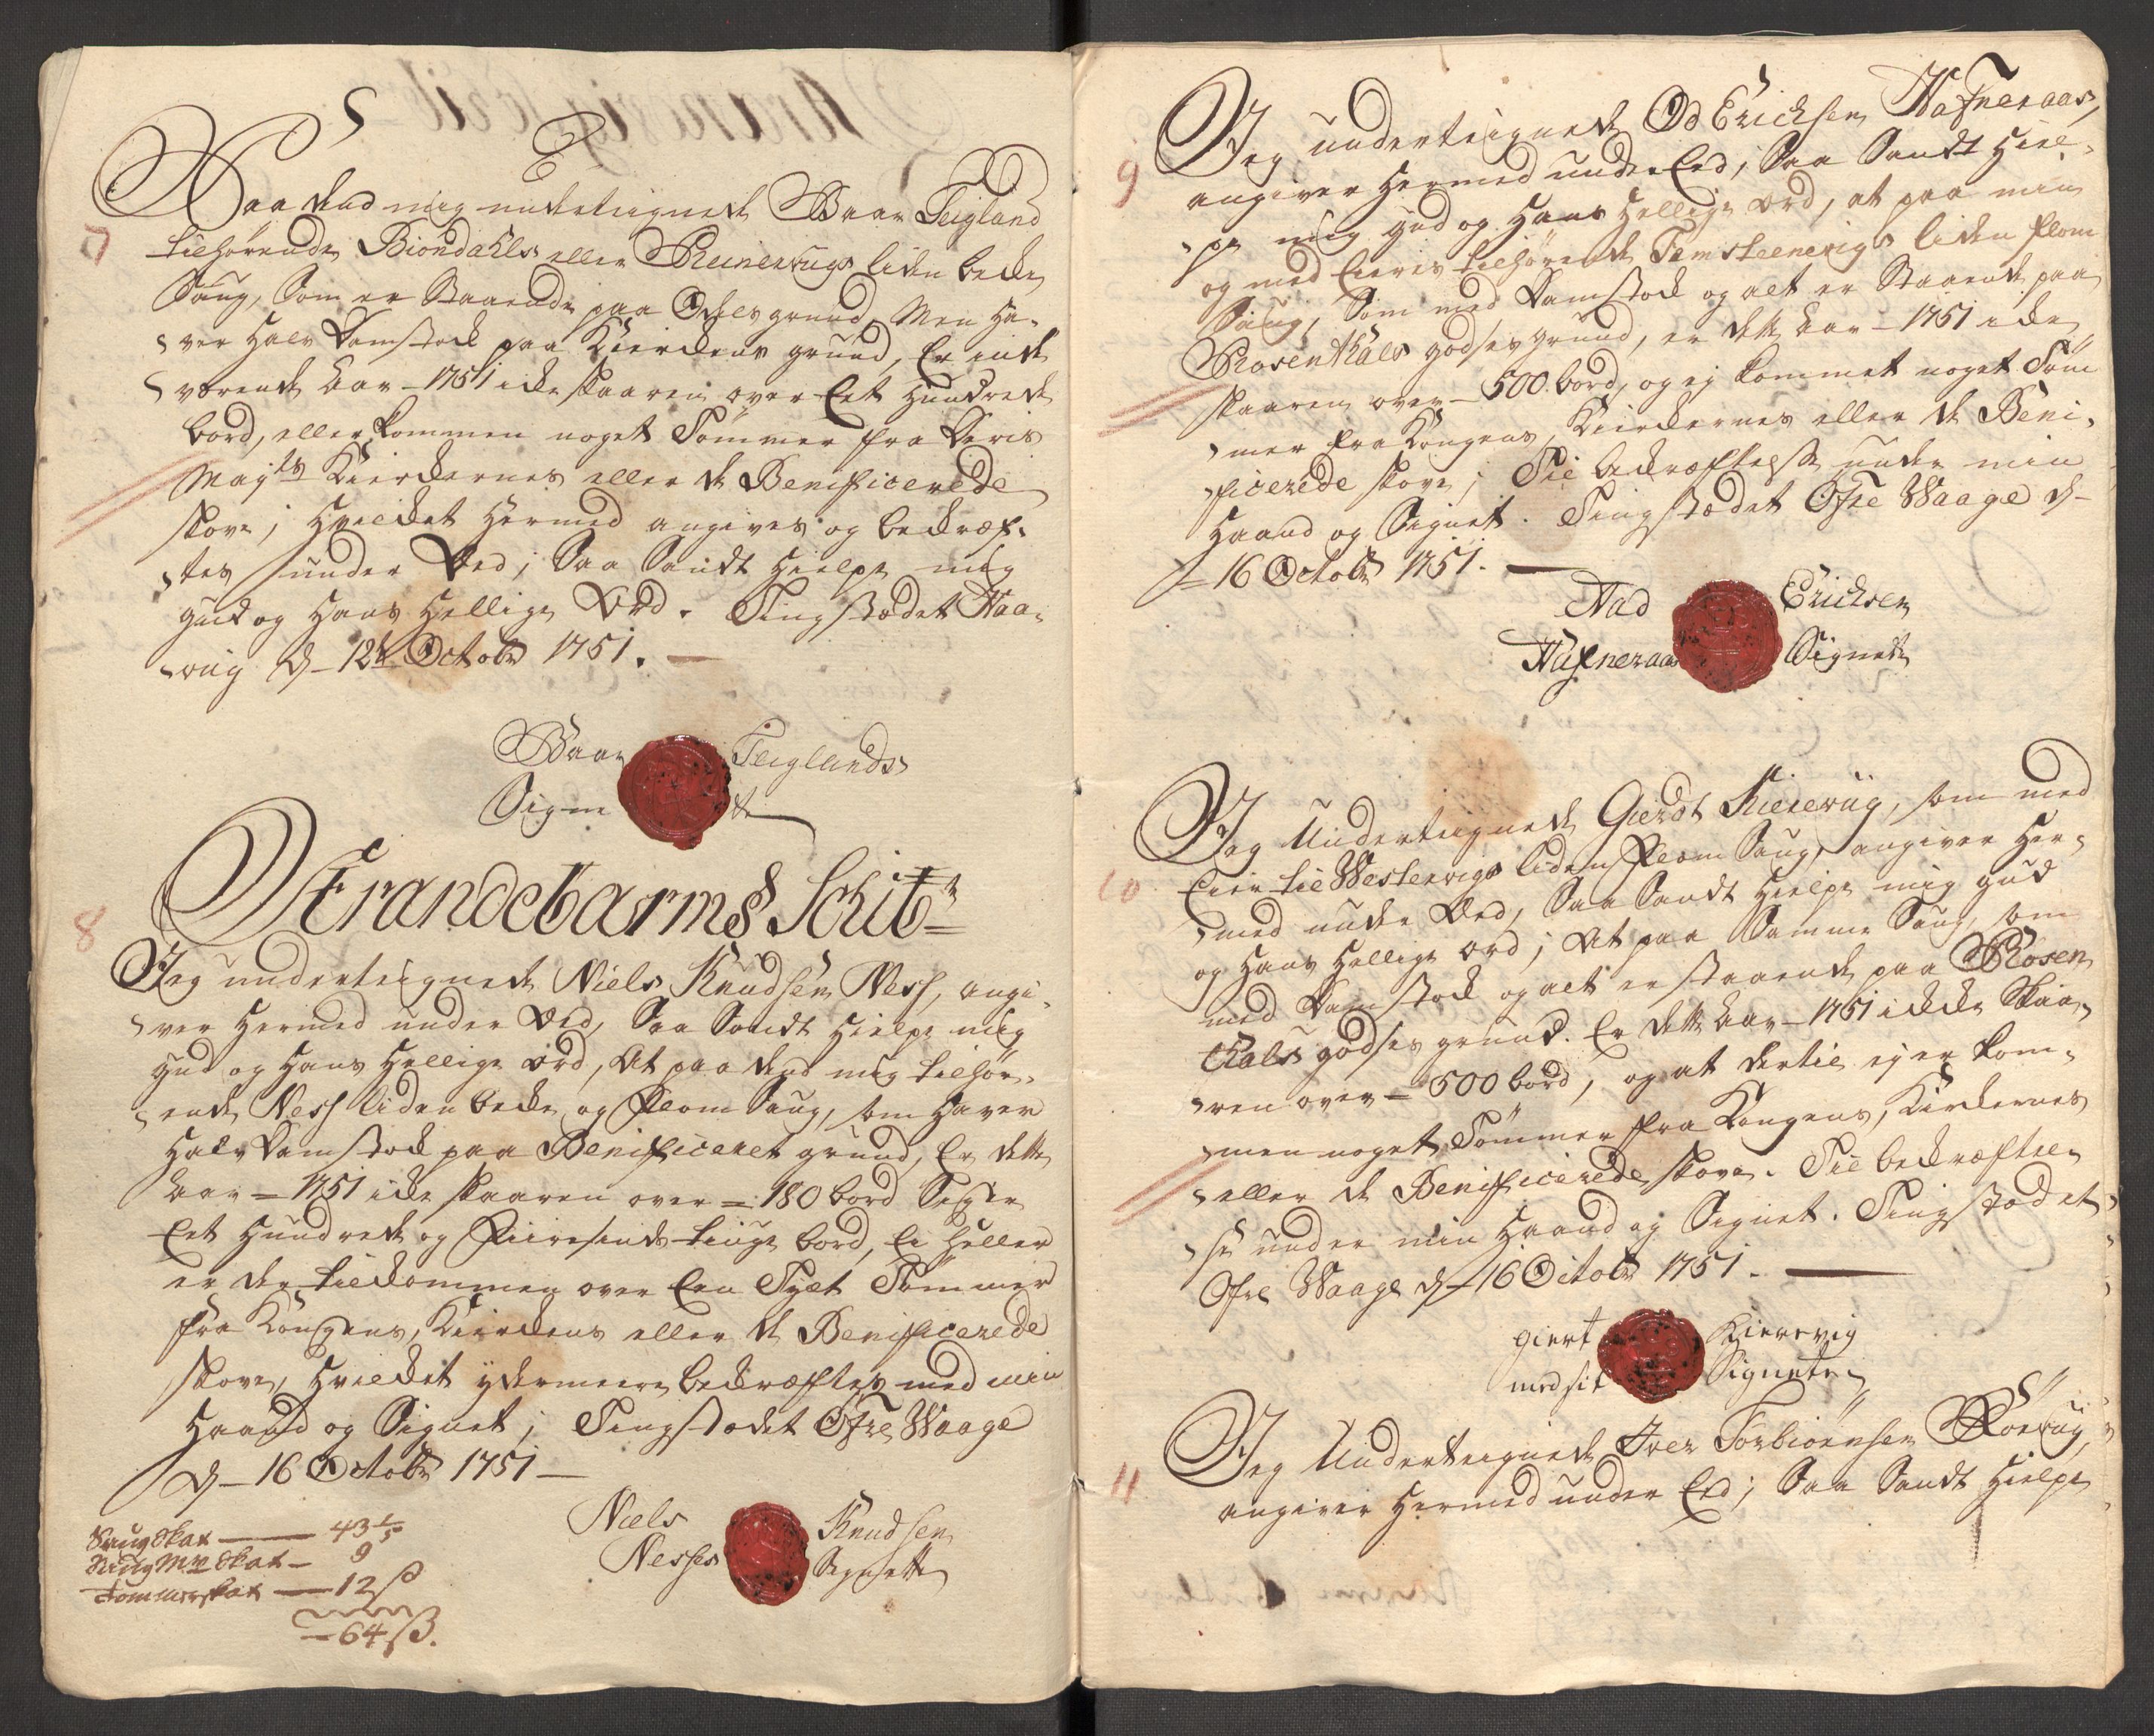 7
Paa dend mig underteignede Baar Teigland
tilhørende Biondahls eller Reinevigs liden becke
Saug, Som er Staaende paa Odels grund, Men ha-
ver halv Damstock paa Kierckens grund, Er inde-
værende Aar 1751 icke skaaren over Eet hundrede
bord, eller kommen noget Tömmer fra Deris
Mayts Kierckernes eller de Benificerede
skove; hvilcket hermed angives og bekræf-
tes under Eed, Saa Sandt hielpe mig
Gud og hans hellige Ord. Tingstædet Haa-
vig d 12te Octobr 1751.
Baar Teiglands
Signete
Strandebarms Schibr
8
Jeg underteignede Niels Knudsen Ness, angi-
ver hermed under Eed, Saa Sandt hielpe mig
Gud og hans hellige ord, At paa dend mig tilhør-
ende Ness liden becke og Flom Saug, som haver
halv Damstock paa Benificeret grund, Er dette
Aar 1751 icke skaaren over 180 bord Siger
Eet hundrede og Fiiresinds tiuge bord, Ei heller
er der tilkommen over Een Tylt Tömmer
fra Kongens, Kierckens eller de Benificerede
skove, hvilcket ydermeere bekræftes med min
Haand og Signet; Tingstædet Ofre Waage
d 16 Octobr 1751
Niels Knudsen
Nesses Signette
Saug Skat 43 1/5
9
Tommerskat 12 ß
64 ß.
9
Jeg underteignede Od Erichsen Hafneraas,
angiver hermed under Eed, Saa Sandt hiel-
pe mig Gud og hans hellige ord, at paa min
og med Eieris tilhørende Temsteenevigs liden flom
Saug, Som med Damstock og alt er Staaende paa
Rosenkrals godses grund, er dette Aar 1751 icke
skaaren over 500 bord, og ej kommet noget Töm-
mer fra Kongens, Kierckernes eller de Beni-
ficerede skove; Til bekræftelse under min
Haand og Signet. Tingstædet Ofre Waage d
16 Octobr 1751.
Aad Erichsen
Hafneraas Signete
10
Jeg Underteignede Gierdt Kierevig, som med
Eier til Westervigs liden Flom Saug, angiver her-
med under Eed, Saa Sandt hielpe mig Gud
og hans hellige ord; At paa Samme Saug, som
med Damstock og alt er staaende paa Rosen
krals godses grund. Er dette Aar 1751 icke Skaa-
ren over 500 bord, og at dertil ej er kom-
men noget Tömmer fra Kongens, Kierckernes
eller de Benificerede skove. Til bekræftel-
se under min Haand og Signet. Tingstædet
Ofre Waage d 16 Octobr 1751.
giert Kierevig
med sit Signete
11
Jeg Underteignede Iver Torbiörnsen Rörvig,
angiver hermed under Eed; Saa Sandt hielpe